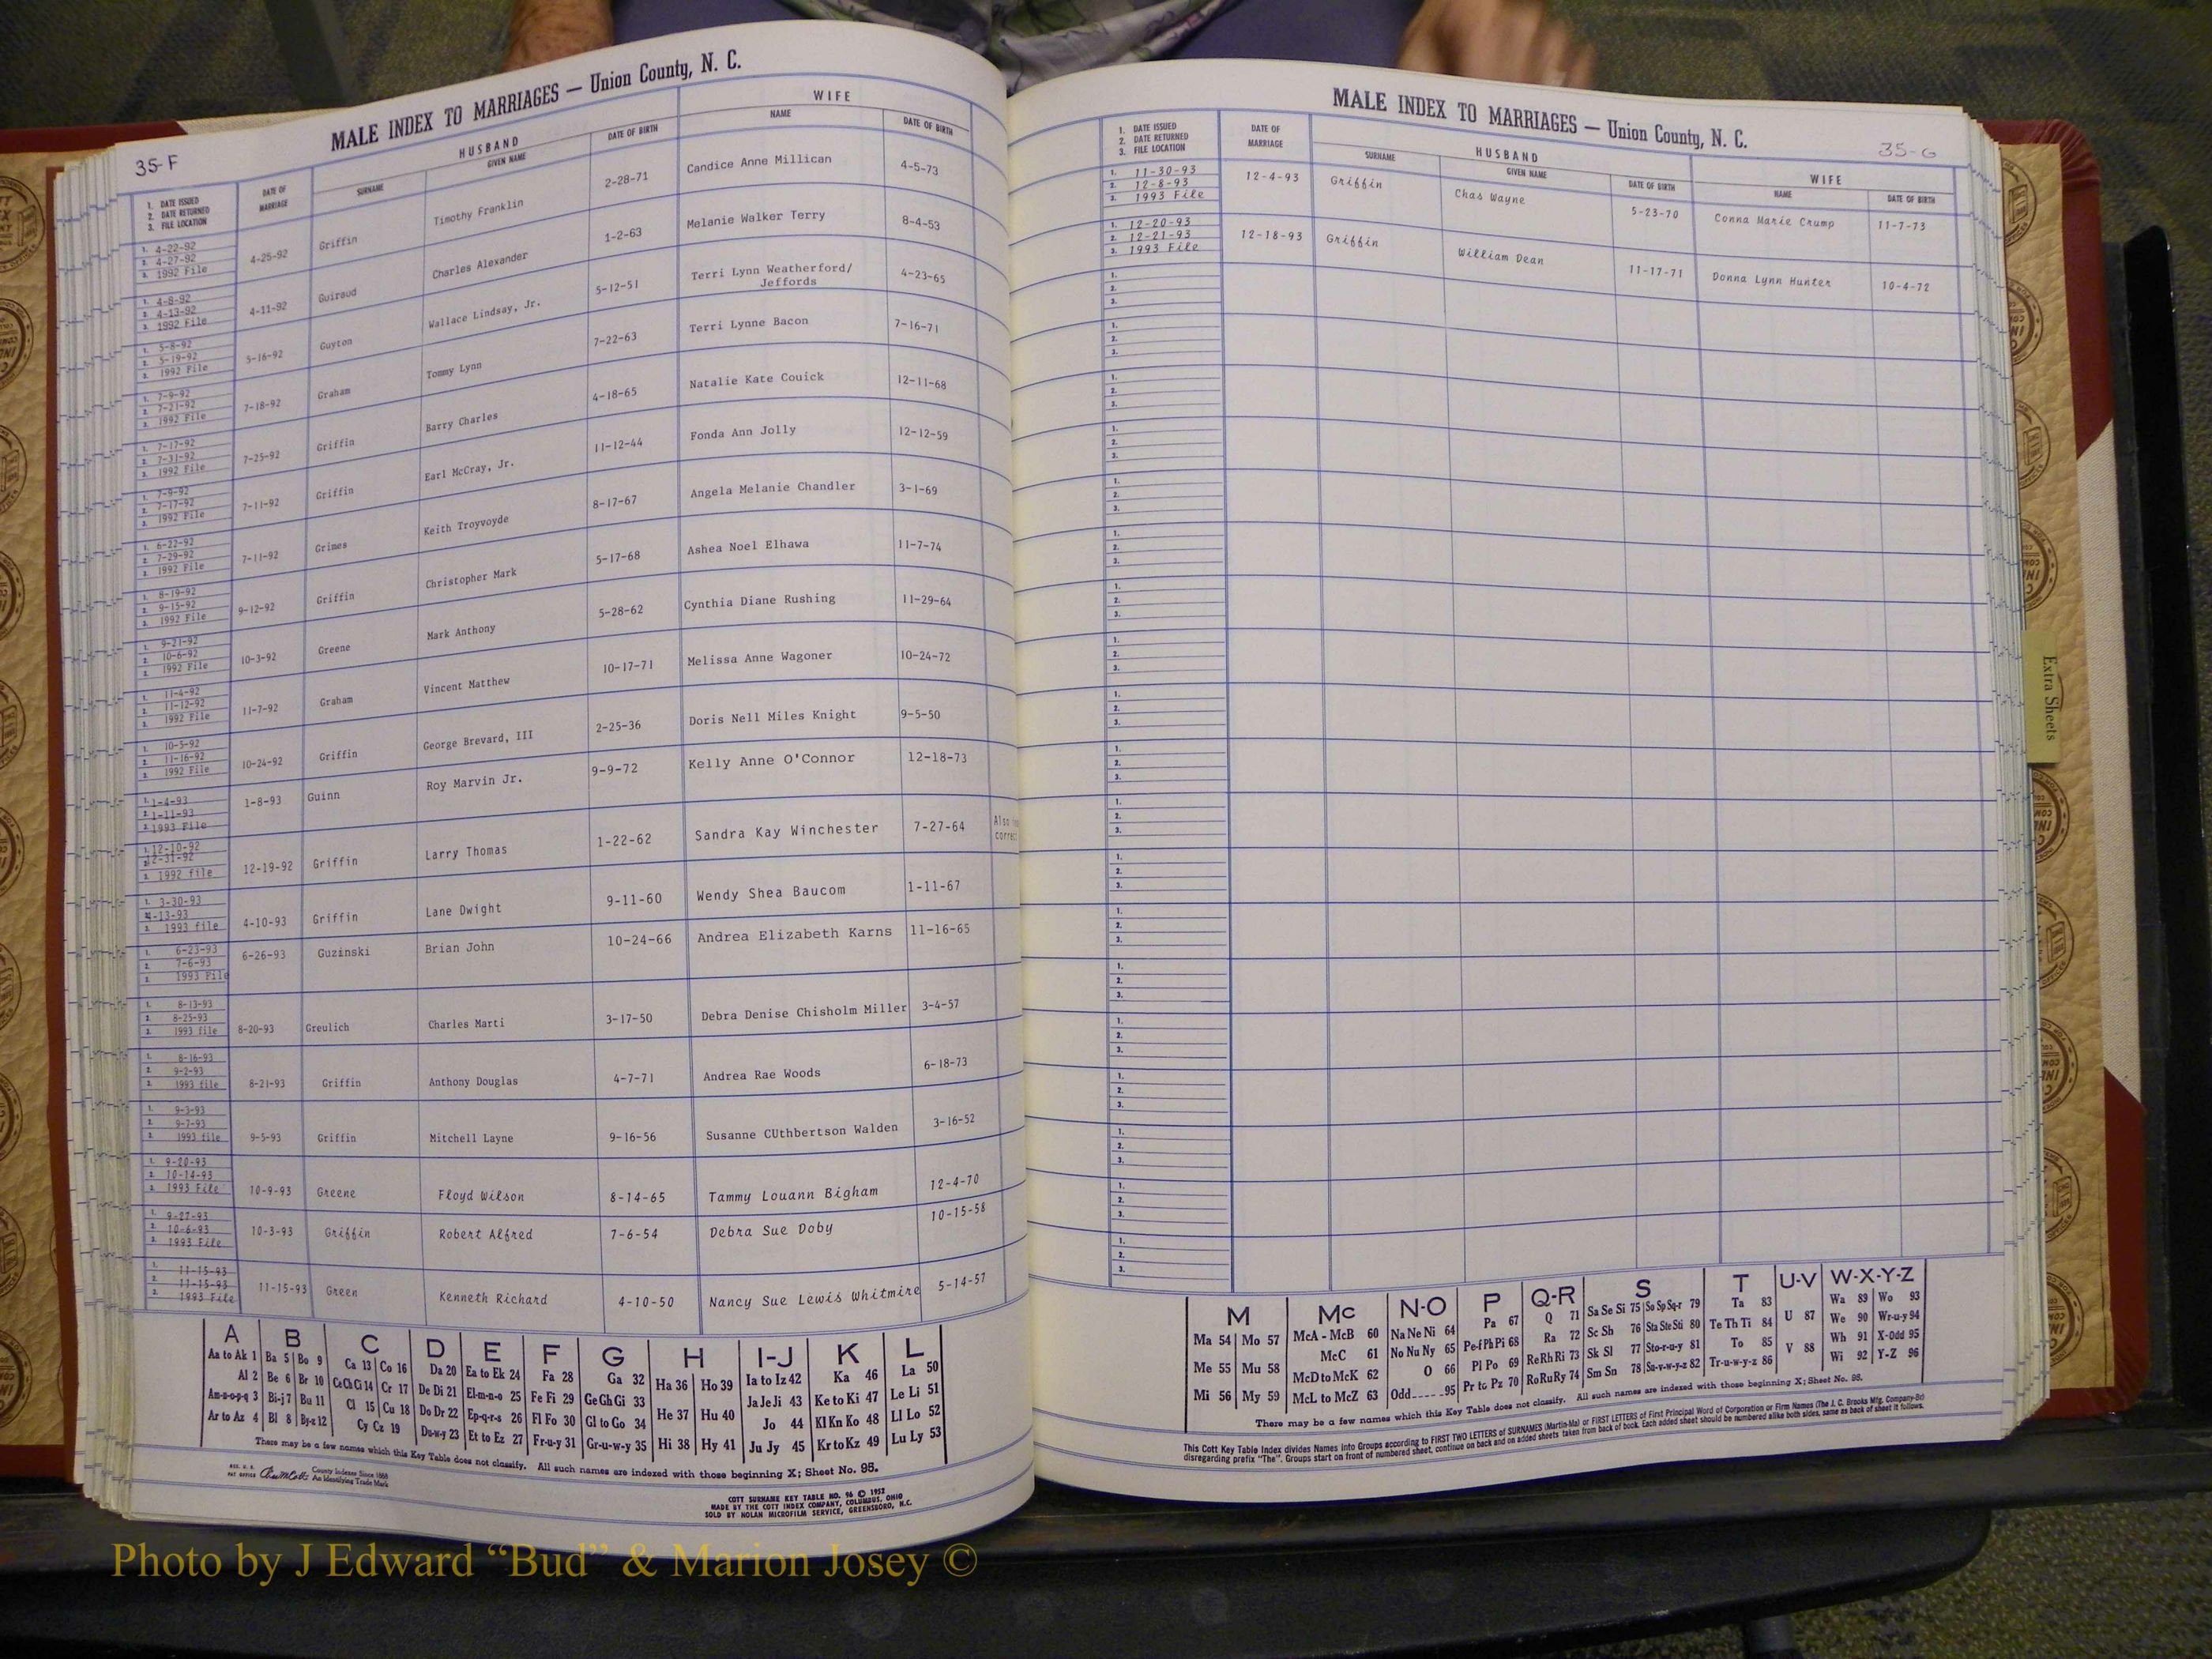 35-F
MALE INDEX TO MARRIAGES — Union County, N. C.
1. DATE ISSUED
2. DATE RETURNED
3. FILE LOCATION
DATE OF MARRIAGE
HUSBAND
SURNAME GIVEN NAME DATE OF BIRTH
WIFE
NAME DATE OF BIRTH
1. 4-22-92
2. 4-27-92
3. 1992 File
4-25-92 Griffin Timothy Franklin 2-28-71 Candice Anne Millican 4-5-73
1. 4-8-92
2. 4-13-92
3. 1992 File
4-11-92 Guiraud Charles Alexander 1-2-63 Melanie Walker Terry 8-4-53
1. 5-8-92
2. 5-19-92
3. 1992 File
5-16-92 Guyton Wallace Lindsay, Jr. 5-12-51 Terri Lynn Weatherford/
Jeffords 4-23-65
1. 7-9-92
2. 7-21-92
3. 1992 File
7-18-92 Graham Tommy Lynn 7-22-63 Terri Lynne Bacon 7-16-71
1. 7-17-92
2. 7-31-92
3. 1992 File
7-25-92 Griffin Barry Charles 4-18-65 Natalie Kate Couick 12-11-68
1. 7-9-92
2. 7-17-92
3. 1992 File
7-11-92 Griffin Earl McCray, Jr. 11-12-44 Fonda Ann Jolly 12-12-59
1. 6-22-92
2. 7-29-92
3. 1992 File
7-11-92 Grimes Keith Troyvoyde 8-17-67 Angela Melanie Chandler 3-1-69
1. 8-19-92
2. 9-15-92
3. 1992 File
9-12-92 Griffin Christopher Mark 5-17-68 Ashea Noel Elhawa 11-7-74
1. 9-21-92
2. 10-6-92
3. 1992 File
10-3-92 Greene Mark Anthony 5-28-62 Cynthia Diane Rushing 11-29-64
1. 11-4-92
2. 11-12-92
3. 1992 File
11-7-92 Graham Vincent Matthew 10-17-71 Melissa Anne Wagoner 10-24-72
1. 10-5-92
2. 11-16-92
3. 1992 File
10-24-92 Griffin George Brevard, III 2-25-36 Doris Nell Miles Knight 9-5-50
1. 1-4-93
2. 1-11-93
3. 1993 File
1-8-93 Guinn Roy Marvin Jr. 9-9-72 Kelly Anne O'Connor 12-18-73
1. 12-10-92
2. 12-31-92
3. 1992 file
12-19-92 Griffin Larry Thomas 1-22-62 Sandra Kay Winchester 7-27-64 Also
1. 3-30-93
4-13-93
3. 1993 file
4-10-93 Griffin Lane Dwight 9-11-60 Wendy Shea Baucom 1-11-67
1. 6-23-93
2. 7-6-93
3. 1993 File
6-26-93 Guzinski Brian John 10-24-66 Andrea Elizabeth Karns 11-16-65
1. 8-13-93
2. 8-25-93
3. 1993 file
8-20-93 Greulich Charles Marti 3-17-50 Debra Denise Chisholm Miller 3-4-57
1. 8-16-93
2. 9-2-93
3. 1993 file
8-21-93 Griffin Anthony Douglas 4-7-71 Andrea Rae Woods 6-18-73
1. 9-3-93
2. 9-7-93
3. 1993 file
9-5-93 Griffin Mitchell Layne 9-16-56 Susanne CUthbertson Walden 3-16-52
1. 9-20-93
2. 10-14-93
3. 1993 File
10-9-93 Greene Floyd Wilson 8-14-65 Tammy Louann Bigham 12-4-70
1. 9-27-93
2. 10-6-93
3. 1993 File
10-3-93 Griffin Robert Alfred 7-6-54 Debra Sue Doby 10-15-58
1. 11-15-93
2. 11-15-93
3. 1993 File
11-15-93 Green Kenneth Richard 4-10-50 Nancy Sue Lewis Whitmire 5-14-57
A B C D E F G H I-J K L
Aa to Ak 1 Ba 5 Bo 9 Ca 13 Co 16 Da 20 Ea to Ek 24 Fa 28 Ga 32 Ha 36 Ho 39 Ia to Iz 42 Ka 46 La 50
Al 2 Be 6 Br 10 Ce Ch Ci 14 Cr 17 De Di 21 El-m-n-o 25 Fe Fi 29 Ge Gh Gi 33 He 37 Hu 40 Ja Je Ji 43 Ke to Ki 47 Le Li 51
Am-n-o-p-q 3 Bi-j 7 Bu 11 Cl 15 Cu 18 Do Dr 22 Ep-q-r-s 26 Fl Fo 30 Gl to Go 34 Hi 38 Hy 41 Jo 44 Kl Kn Ko 48 Ll Lo 52
Ar to Az 4 Bl 8 By-z 12 Cy Cz 19 Du-w-y 23 Et to Ez 27 Fr-u-y 31 Gr-u-w-y 35 Ju Jy 45 Kr to Kz 49 Lu Ly 53
There may be a few names which this Key Table does not classify. All such names are indexed with those beginning X; Sheet No. 95.
County Indexes Since 1888
An Identifying Trade Mark
COTT SURNAME KEY TABLE NO. 96 © 1952
MADE BY THE COTT INDEX COMPANY, COLUMBUS, OHIO
SOLD BY NOLAN MICROFILM SERVICE, GREENSBORO, N.C.
MALE INDEX TO MARRIAGES — Union County, N. C.
35-G
1. DATE ISSUED
2. DATE RETURNED
3. FILE LOCATION
DATE OF MARRIAGE
HUSBAND
SURNAME GIVEN NAME DATE OF BIRTH
WIFE
NAME DATE OF BIRTH
1. 11-30-93
2. 12-8-93
3. 1993 File
12-4-93 Griffin Chas Wayne 5-23-70 Conna Marie Crump 11-7-73
1. 12-20-93
2. 12-21-93
3. 1993 File
12-18-93 Griffin William Dean 11-17-71 Donna Lynn Hunter 10-4-72
1.
2.
3.
1.
2.
3.
1.
2.
3.
1.
2.
3.
1.
2.
3.
1.
2.
3.
1.
2.
3.
1.
2.
3.
1.
2.
3.
1.
2.
3.
1.
2.
3.
1.
2.
3.
1.
2.
3.
1.
2.
3.
1.
2.
3.
1.
2.
3.
1.
2.
3.
1.
2.
3.
1.
2.
3.
Extra Sheets
M Mc N-O P Q-R S T U-V W-X-Y-Z
Ma 54 Mo 57 McA - McB 60 Na Ne Ni 64 Pa 67 Q 71 Sa Se Si 75 So Sp Sq-r 79 Ta 83 U 87 Wa 89 Wo 93
Me 55 Mu 58 McC 61 No Nu Ny 65 Pe-f Ph Pi 68 Ra 72 Sc Sh 76 Sta Ste Sti 80 Te Th Ti 84 V 88 We 90 Wr-u-y 94
Mi 56 My 59 McD to McK 62 O 66 Pl Po 69 Re Rh Ri 73 Sk Sl 77 Sto-r-u-y 81 To 85 Wh 91 X-Odd 95
McL to McZ 63 Odd 95 Pr to Pz 70 Ro Ru Ry 74 Sm Sn 78 Su-v-w-y-z 82 Tr-u-w-y-z 86 Wi 92 Y-Z 96
There may be a few names which this Key Table does not classify. All such names are indexed with those beginning X; Sheet No. 95.
This Cott Key Table Index divides Names into Groups according to FIRST TWO LETTERS of SURNAMES (Martin-Ma) or FIRST LETTERS of First Principal Word of Corporation or Firm Names (The J. C. Brooks Mfg. Company-Br)
disregarding prefix "The". Groups start on front of numbered sheet, continue on back and on added sheets taken from back of book. Each added sheet should be numbered alike both sides, same as back of sheet it follows.
Photo by J Edward “Bud” & Marion Josey ©